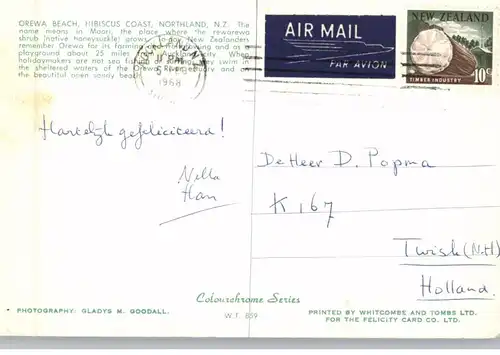 OREWA BEACH, HIBISCUS COAST, NORTHLAND, N.Z. The
name means in Maori, the place where the rewarewa
shrub (native honeysuckle) grows. Today New Zealanders
remember Orewa for its farming and and as a
playground about 25 miles of Auckland City. When
holidaymakers are not sea fishing or surfing they swim in
the sheltered waters of the Orewa River estuary and on
the beautiful open sandy beach.
1968
AIR MAIL
PAR AVION
NEW ZEALAND
TIMBER INDUSTRY 10c
Hartelijk gefeliciteerd!
Nella
Han
De Heer D. Popma
K 167
Twisk (N.H)
Holland.
Colourchrome Series
PHOTOGRAPHY: GLADYS M. GOODALL.
W.T. 859
PRINTED BY WHITCOMBE AND TOMBS LTD.
FOR THE FELICITY CARD CO. LTD.